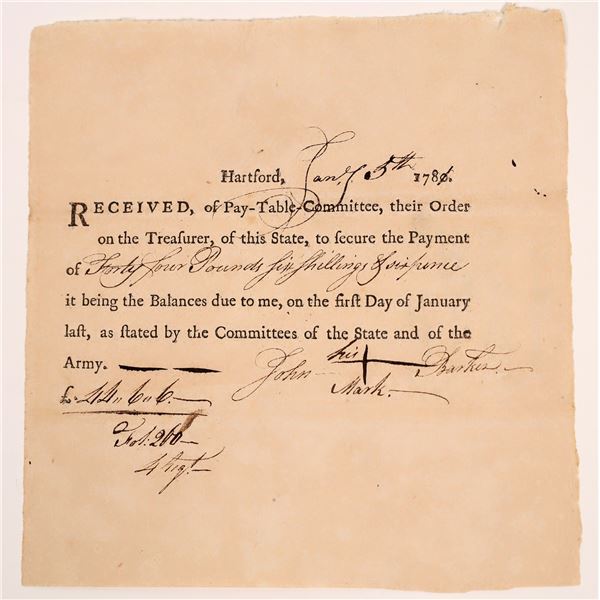 Hartford, Jan.y 5th 1781.
RECEIVED, of Pay-Table-Committee, their Order
on the Treasurer, of this State, to secure the Payment
of Forty four Pounds six shillings & sixpence
it being the Balances due to me, on the first Day of January
last, as stated by the Committees of the State and of the
Army.
John his Mark Barker.
£44 " 6 " 6
Fol: 260
4 Regt